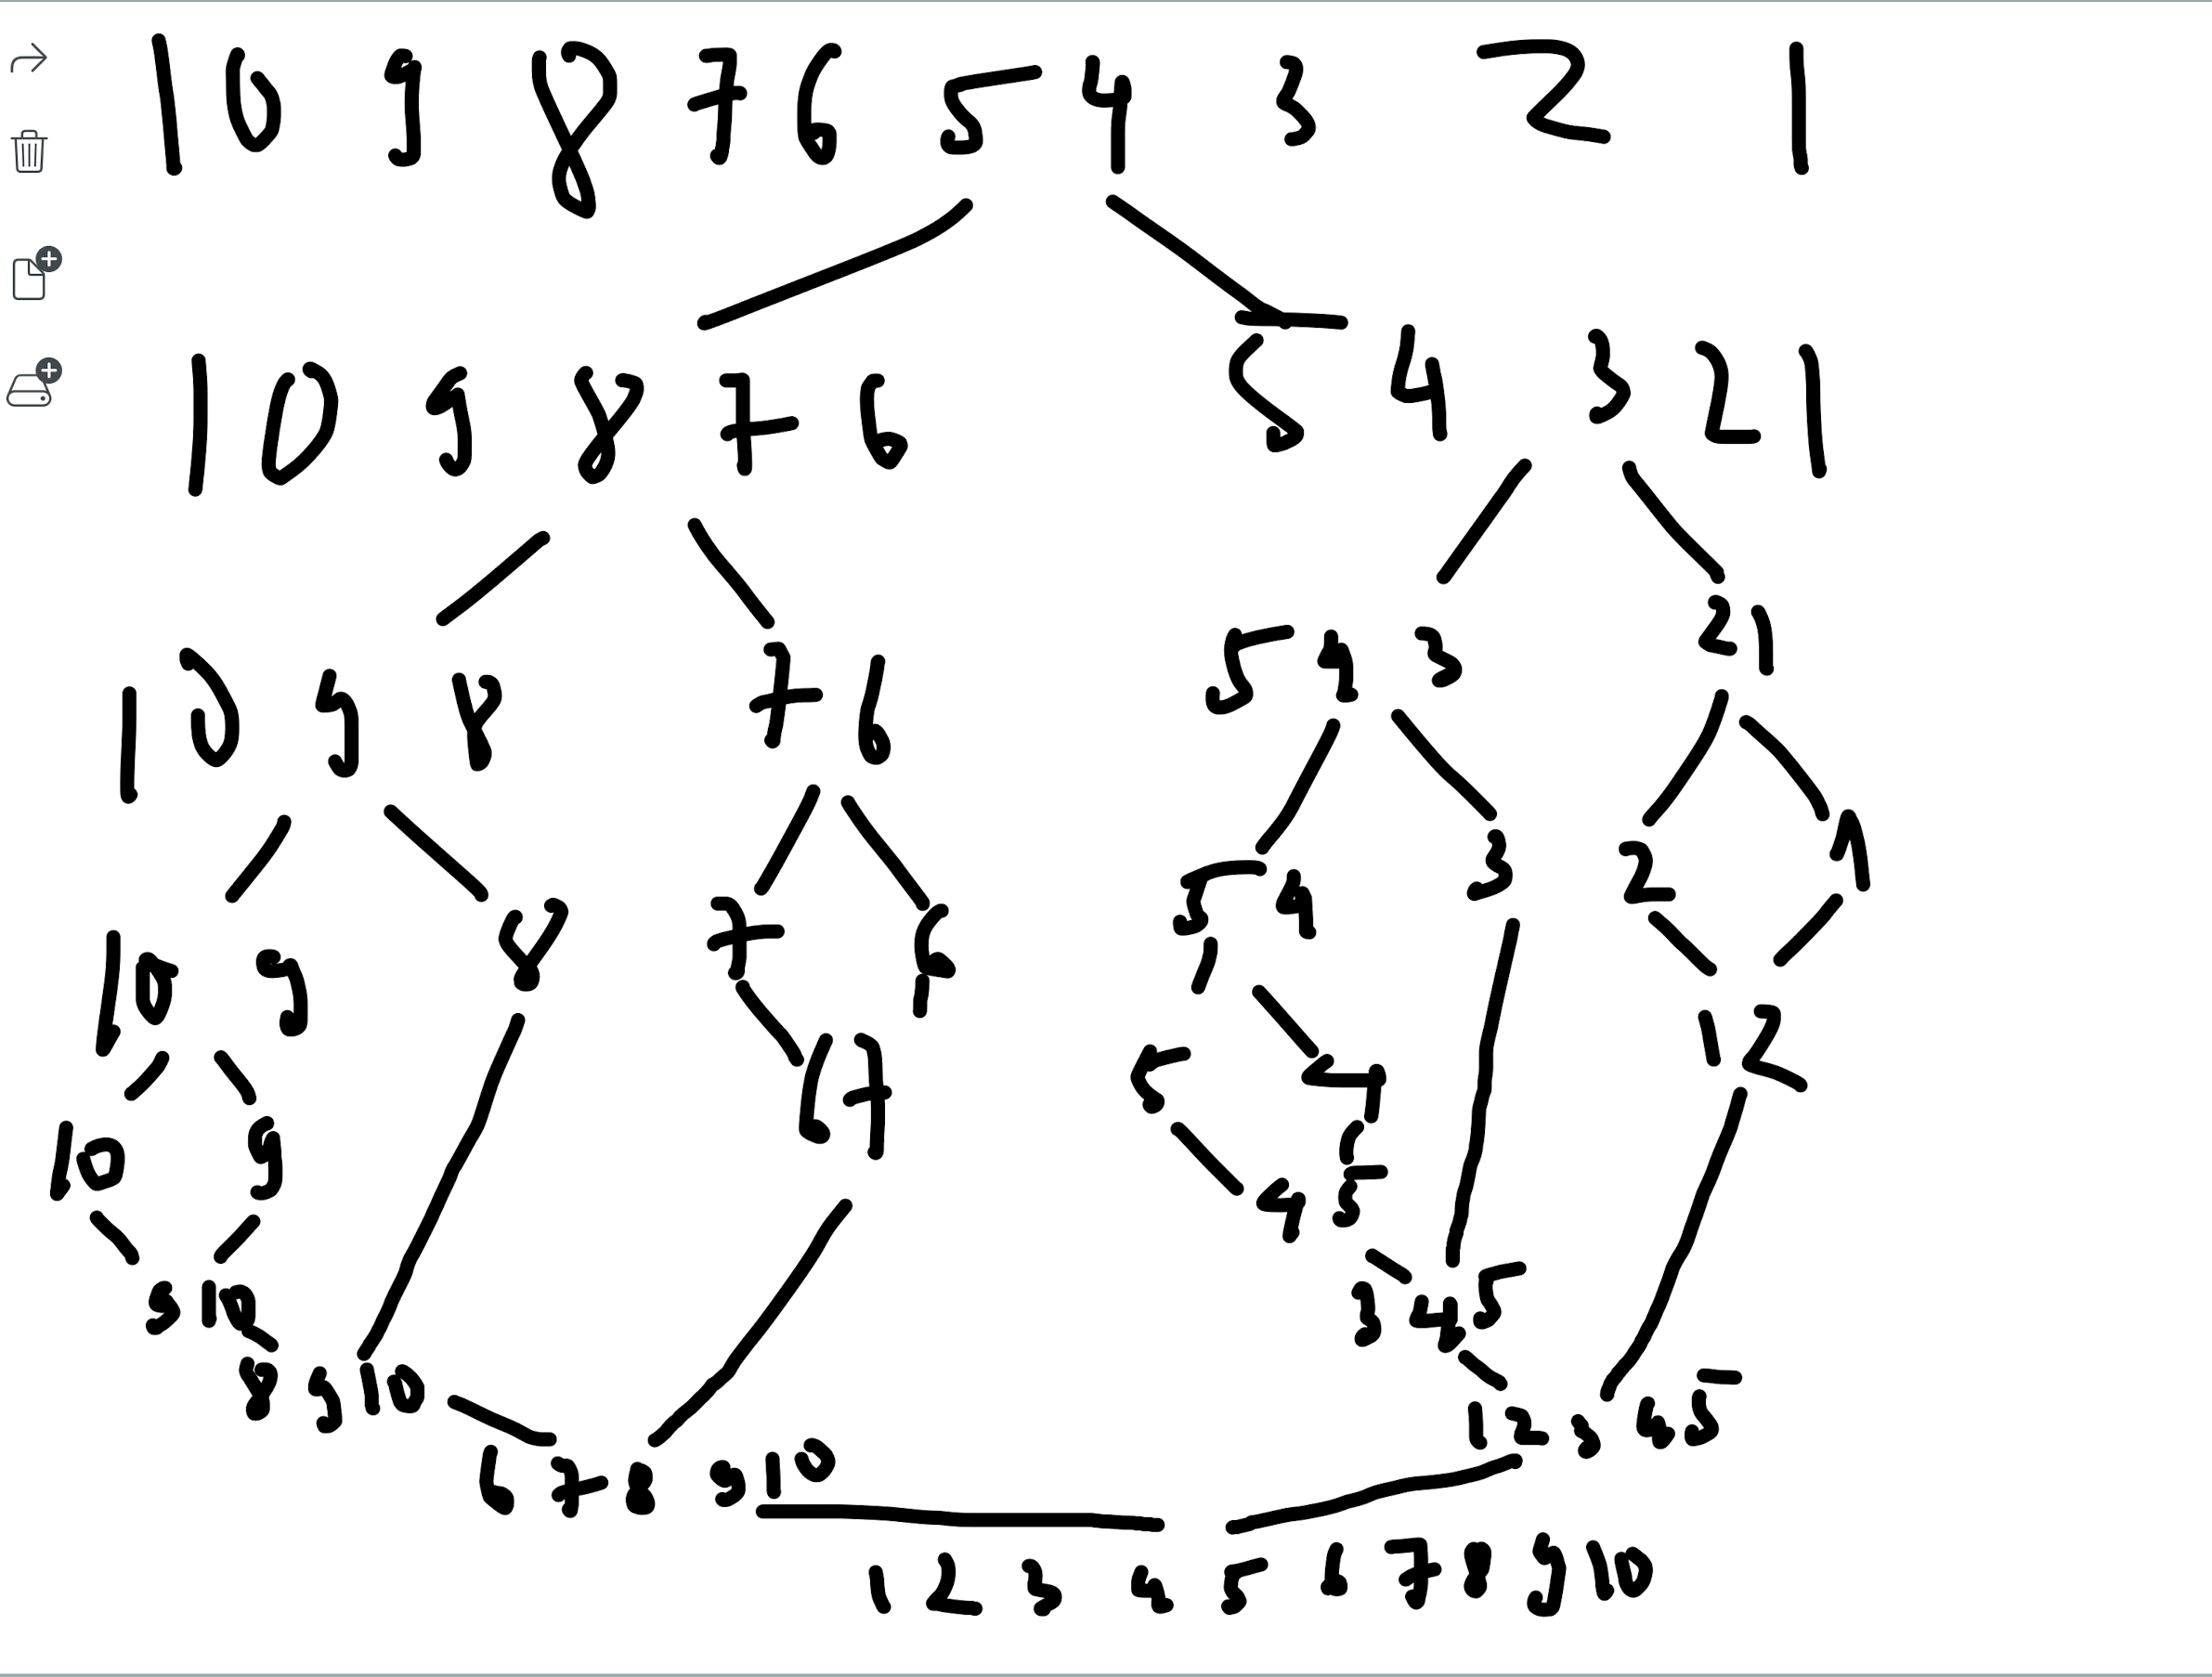 10 9 8 7 6 5 4 3 2 1
10 9 8 7 6 5 4 3 2 1
10 9 8 7 6 5 4 3 2 1
10 9 8 7 6 5 4 3 2 1
5 4 1 2
6 7
10 9 4 5
9 10 3 4 5
8 9 10 1 2 3 4 5
6 7 8 9 10
1 2 3 4 5 6 7 8 9 10